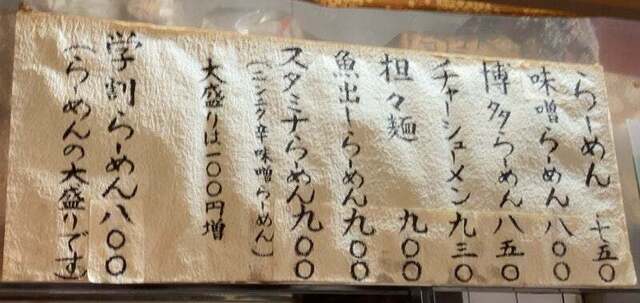 らーめん 七五〇
味噌らーめん 八〇〇
博多らーめん 八五〇
チャーシューメン 九三〇
担々麺 九〇〇
魚出しらーめん 九〇〇
スタミナらーめん 九〇〇
(ニンニク辛味噌らーめん)
大盛りは一〇〇円増
学割らーめん 八〇〇
(らーめんの大盛りです)